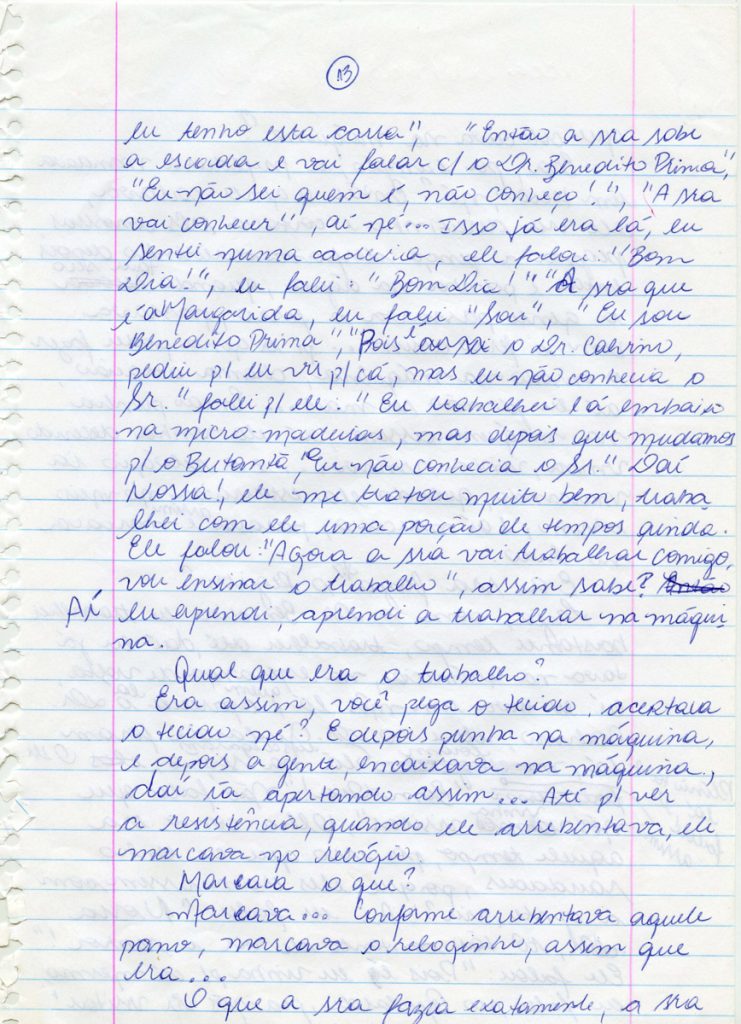 13
eu tenho esta carta", "Então a sra sobe
a escada e vai falar c/ o Dr. Benedito Prima",
"Eu não sei quem é, não conheço!", "A sra
vai conhecer", aí né... Isso já era lá, eu
sentei numa cadeira, ele falou: "Bom
Dia!", eu falei: "Bom Dia!" "A sra que
é a Margarida, eu falei "Sou", "Eu sou
Benedito Prima", "Pois é o Dr.
pediu p/ eu vir p/ cá, mas eu não conhecia o
Sr." falei p/ ele: "Eu trabalhei lá embaixo
na micro-madeiras, mas depois que mudamos
p/ o Butantã, eu não conhecia o Sr." Daí
Nossa!, ele me tratou muito bem, traba
lhei com ele uma porção de tempos ainda.
Ele falou: "Agora a sra vai trabalhar comigo,
vou ensinar o trabalho", assim sabe? Então
Aí eu aprendi, aprendi a trabalhar na máqui
na.
Qual que era o trabalho?
Era assim, você pega o tecido, acertava
o tecido né? E depois punha na máquina,
e depois a gente, encaixava na máquina,
daí ia apertando assim... Até p/ ver
a resistência, quando ele arrebentava, ele
marcava no relógio.
Marcava o que?
Marcava... Conforme arrebentava aquele
pano, marcava o reloginho, assim que
era....
O que a sra fazia exatamente, a sra